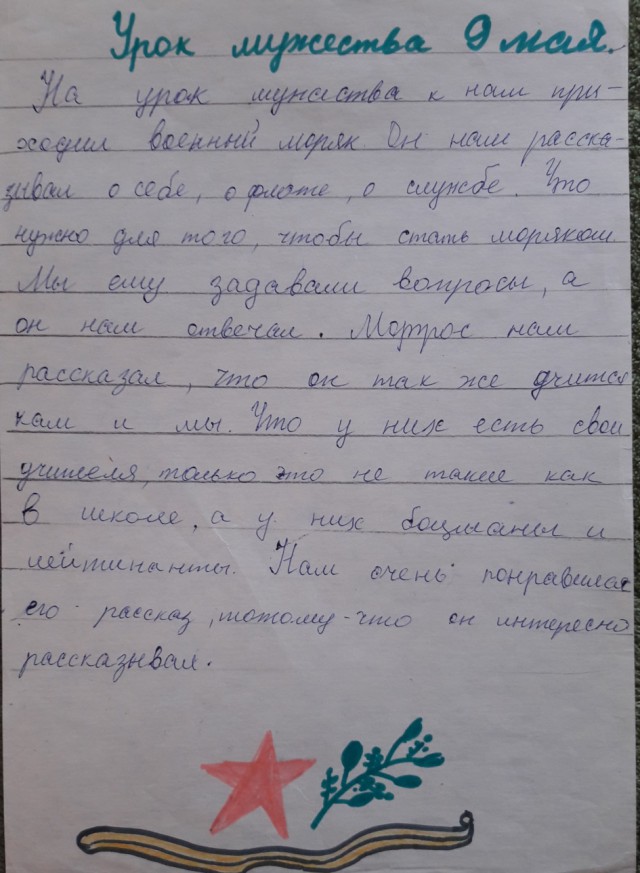 Урок мужества 9 мая.
На урок мужества к нам при-
ходил военный моряк. Он нам расска-
зывал о себе, о флоте, о службе. Что
нужно для того, чтобы стать моряком
Мы ему задавали вопросы, а
он нам отвечал. Мотрос нам
рассказал, что он так же учится
как и мы. Что у них есть свои
учителя, только это не такие как
в школе, а у них боцманы и
лейтинанты. Нам очень понравилас
его рассказ, потому-что он интересно
рассказывал.